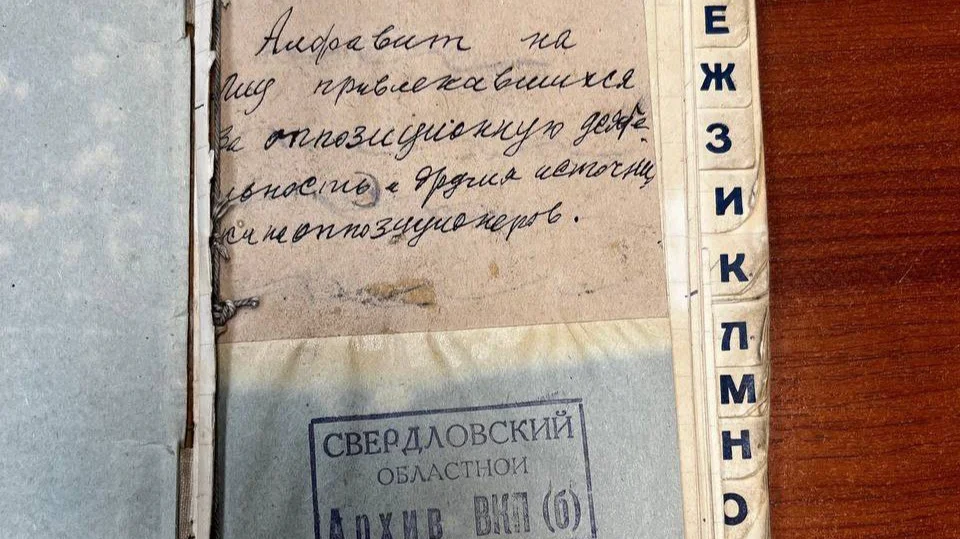 Алфравит на
лиц привлекавшихся
за оппозиционную деяте-
льность и другия источни
ки на оппозиционеров.
СВЕРДЛОВСКИЙ
ОБЛАСТНОЙ
Архив ВКП(б)
Е
Ж
З
И
К
Л
М
Н
О